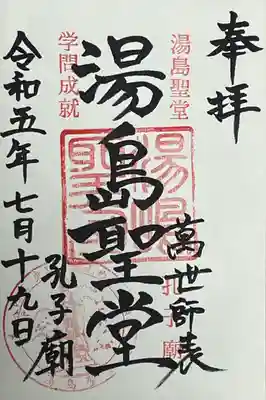 奉拝
湯島聖堂
萬世師表
孔子廟
湯島聖堂
孔子廟
学問成就
令和五年七月十九日